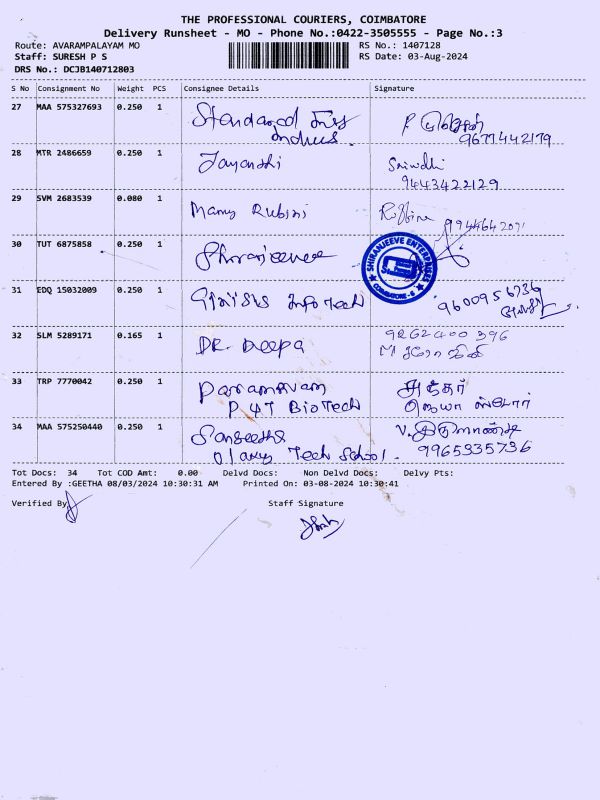 THE PROFESSIONAL COURIERS, COIMBATORE
Delivery Runsheet - MO - Phone No.:0422-3505555 - Page No.:3
Route: AVARAMPALAYAM MO RS No.: 1407128
Staff: SURESH P S RS Date: 03-Aug-2024
DRS No.: DCJB140712803
S No Consignment No Weight PCS Consignee Details Signature
27 MAA 575327693 0.250 1 Standared
9677442179
28 MTR 2486659 0.250 1 Jayanthi Srinidhi
9443422129
29 SVM 2683539 0.080 1 Rubini
30 TUT 6875858 0.250 1
SHIRANJEEVE ENTERPRISES
COIMBATORE - 6
31 EDQ 15032009 0.250 1 InfoTech 9600956736
32 SLM 5289171 0.165 1 DR. Deepa 9262400396
33 TRP 7770042 0.250 1
BioTech ஜெயா ஸ்டோர்
34 MAA 575250440 0.250 1 Sangeetha
Tech School. 9965335736
Tot Docs: 34 Tot COD Amt: 0.00 Delvd Docs: Non Delvd Docs: Delvy Pts:
Entered By :GEETHA 08/03/2024 10:30:31 AM Printed On: 03-08-2024 10:30:41
Verified By Staff Signature